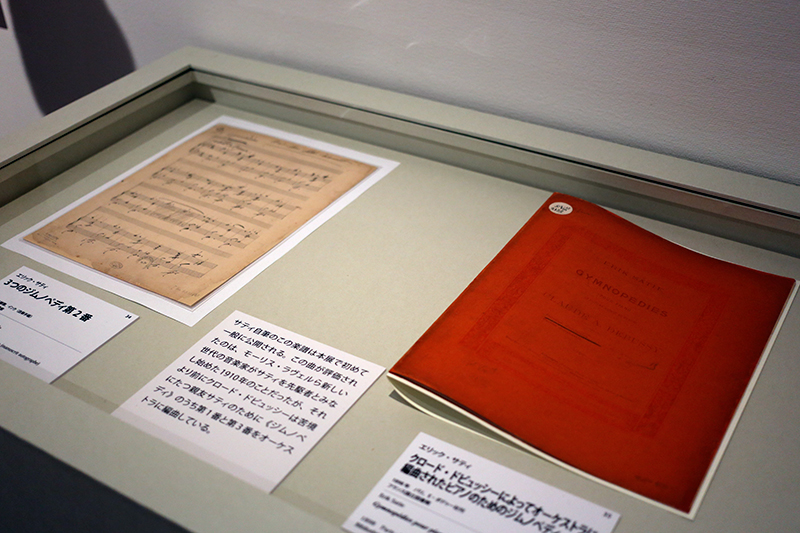 エリック・サティ
3つのジムノペティ第2番
34
サティ自筆のこの楽譜は本展で初めて
一般に公開される。この曲が評価され
たのは、モーリス・ラヴェルら新しい
世代の音楽家がサティを先駆者とみな
し始めた1910年のことだったが、それ
より前にクロード・ドビュッシーは苦境
にたつ親友サティのために《ジムノペ
ディ》のうち第1番と第3番をオーケス
トラに編曲している。
GYMNOPÉDIES
エリック・サティ
クロード・ドビュッシーによってオーケストラに
編曲されたピアノのためのジムノペティ
35
Erik Satie